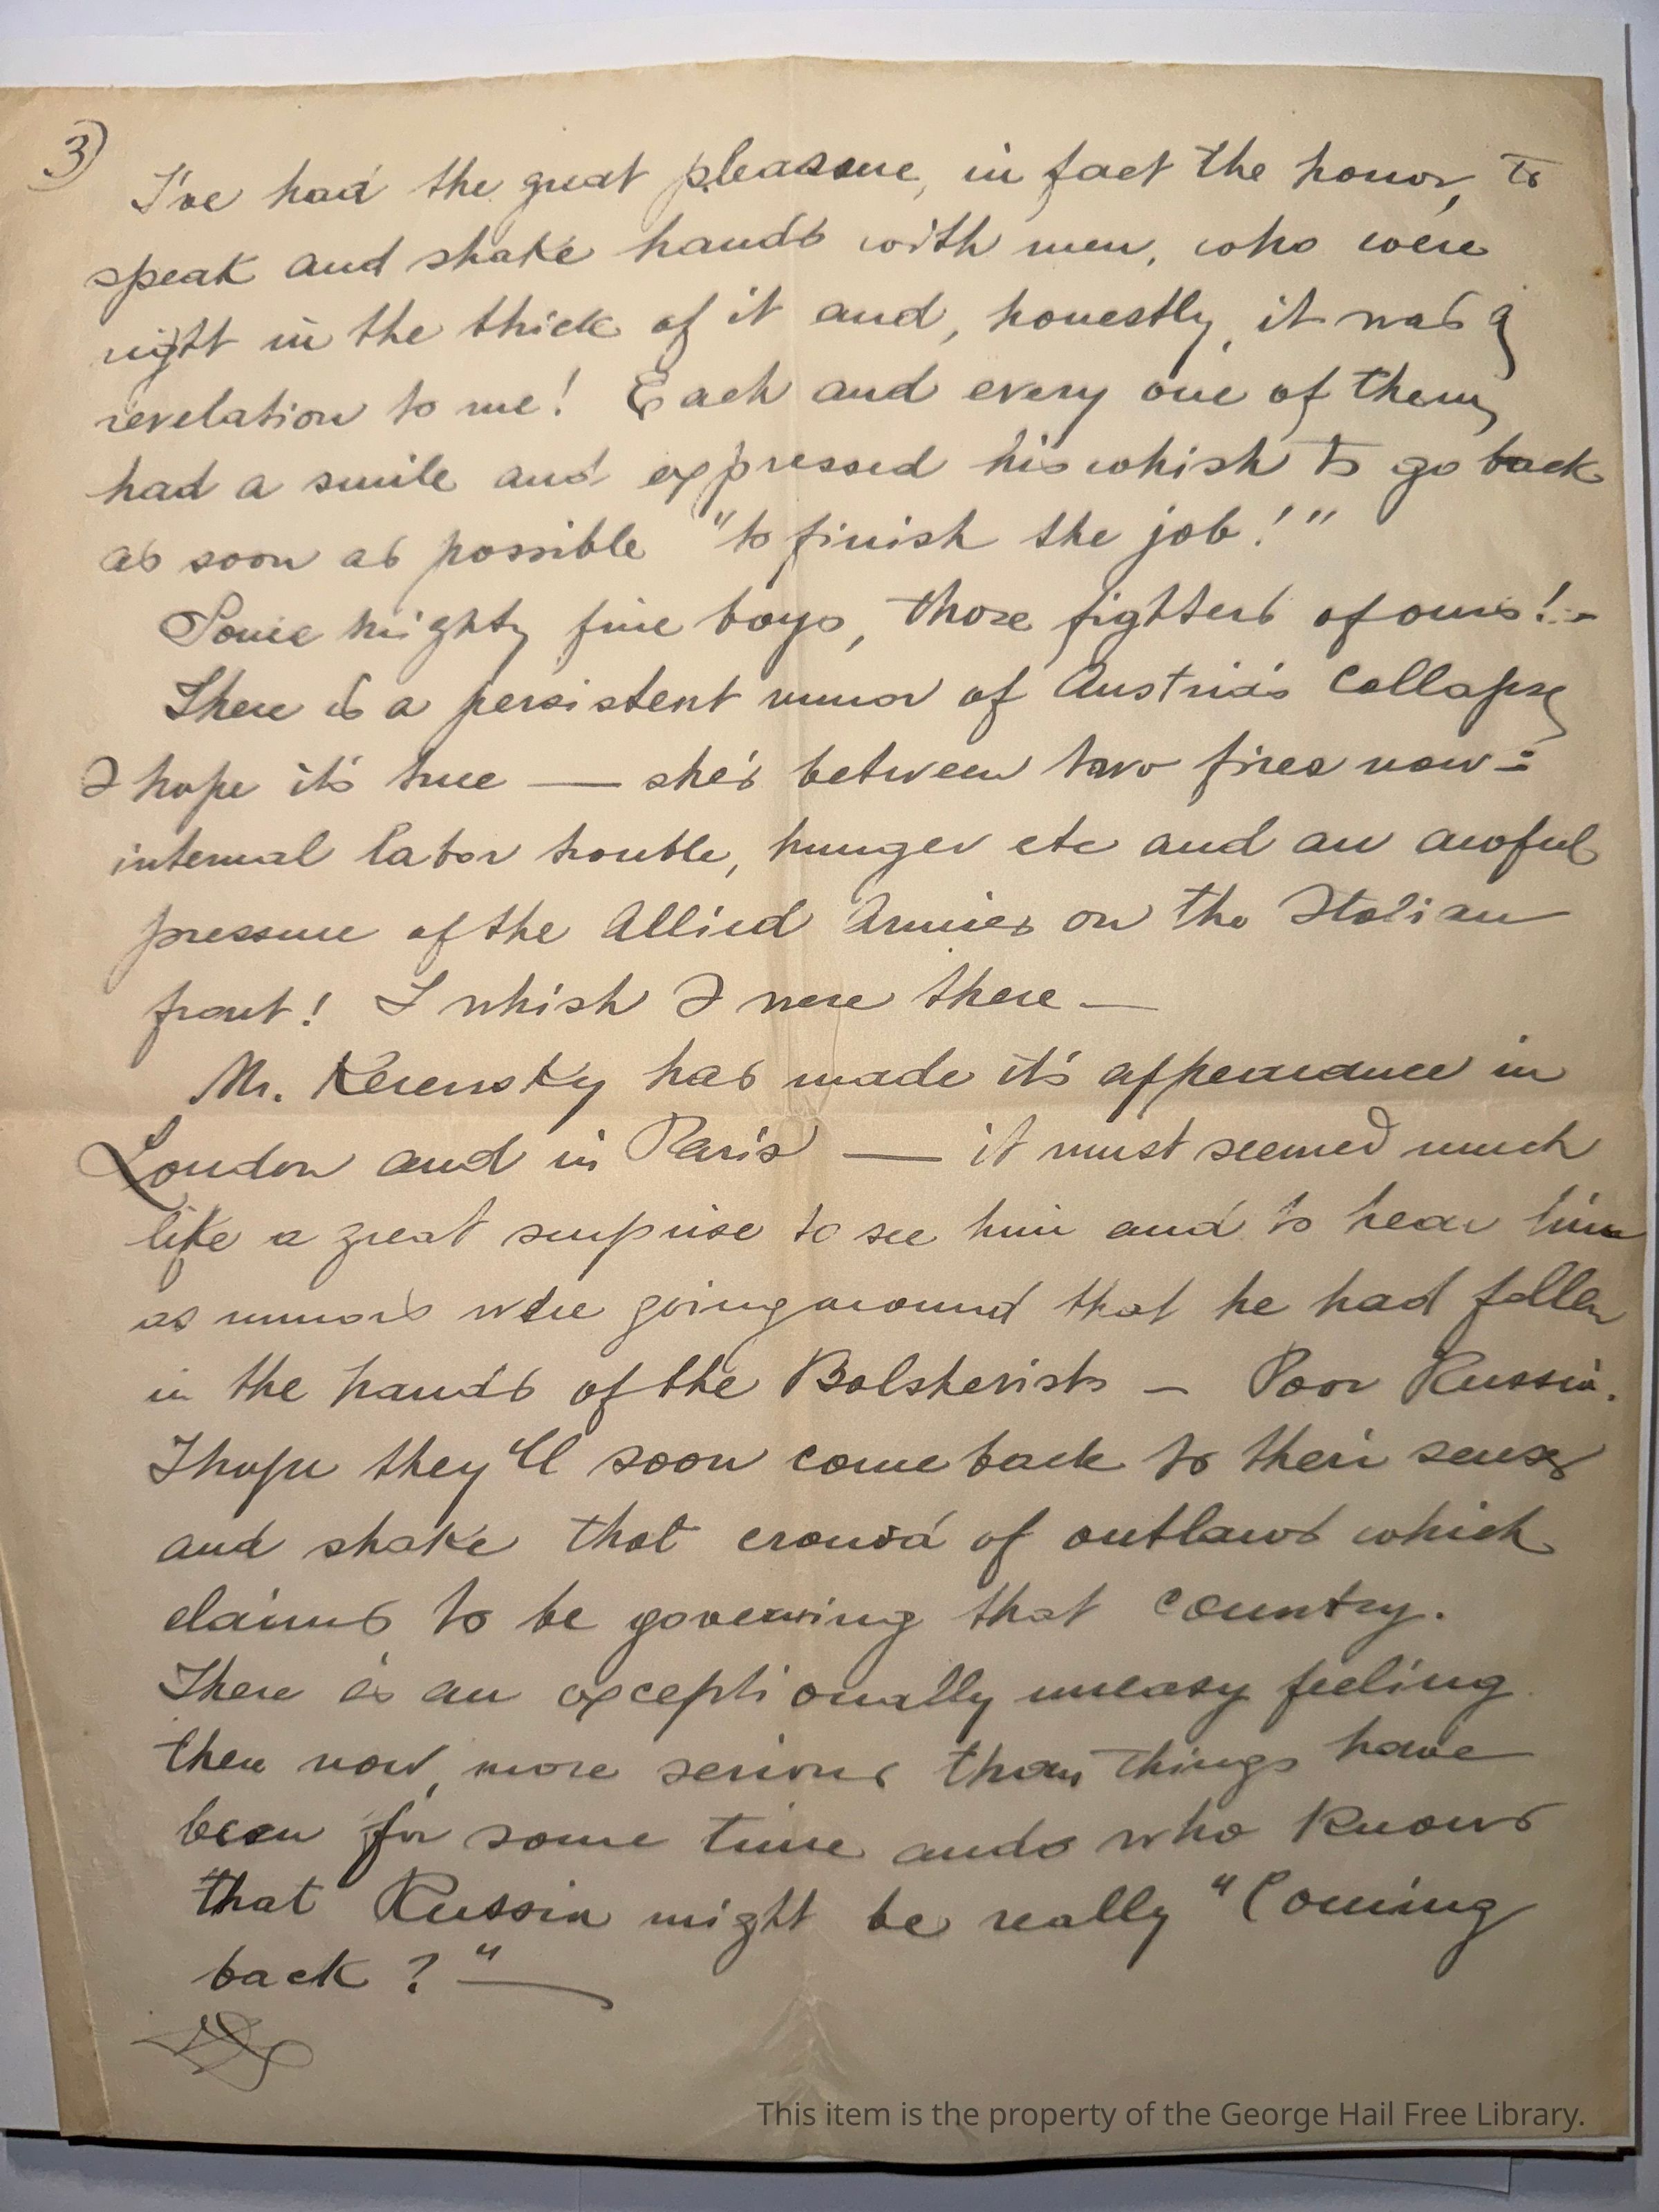 3)
I've had the great pleasure, in fact the honor, to
speak and shake hands with men, who were
right in the thick of it and, honestly, it was a
revelation to me! Each and every one of them,
had a smile and expressed his whish to go back
as soon as possible "to finish the job!"
Some mighty fine boys, those fighters of ours! -
There is a persistent rumor of Austria's collapse,
I hope it's true — she's between two fires now =
internal labor trouble, hunger etc and an awful
pressure of the Allied Armies on the Italian
front! I whish I were there —
Mr. Kerensky has made it's appearance in
London and in Paris — it must seemed much
like a great surprise to see him and to hear him
as rumors were going around that he had fallen
in the hands of the Bolshevists — Poor Russia.
I hope they'll soon come back to their senses
and shake that crowd of outlaws which
claims to be governing that country.
There is an exceptionally uneasy feeling
there now, more serious than things have
been for some time and who knows
that Russia might be really "Coming
back?" —
This item is the property of the George Hail Free Library.